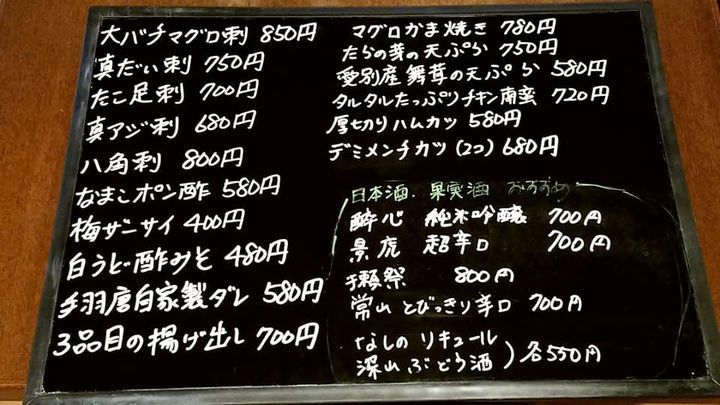 大バチマグロ刺 850円
真だい刺 750円
たこ足刺 700円
真アジ刺 680円
八角刺 800円
なまこポン酢 580円
梅ザーサイ 400円
白うど酢みそ 480円
手羽唐自家製ダレ 580円
3品目の揚げ出し 700円
マグロかま焼き 780円
たらの芽の天ぷら 750円
愛別産舞茸の天ぷら 580円
タルタルたっぷりチキン南蛮 720円
厚切りハムカツ 580円
デミメンチカツ(2コ) 680円
日本酒・果実酒 おすすめ
酔心 純米吟醸 700円
景虎 超辛口 700円
獺祭 800円
常山 とびっきり辛口 700円
なしの リキュール
深山ぶどう酒 ) 各550円